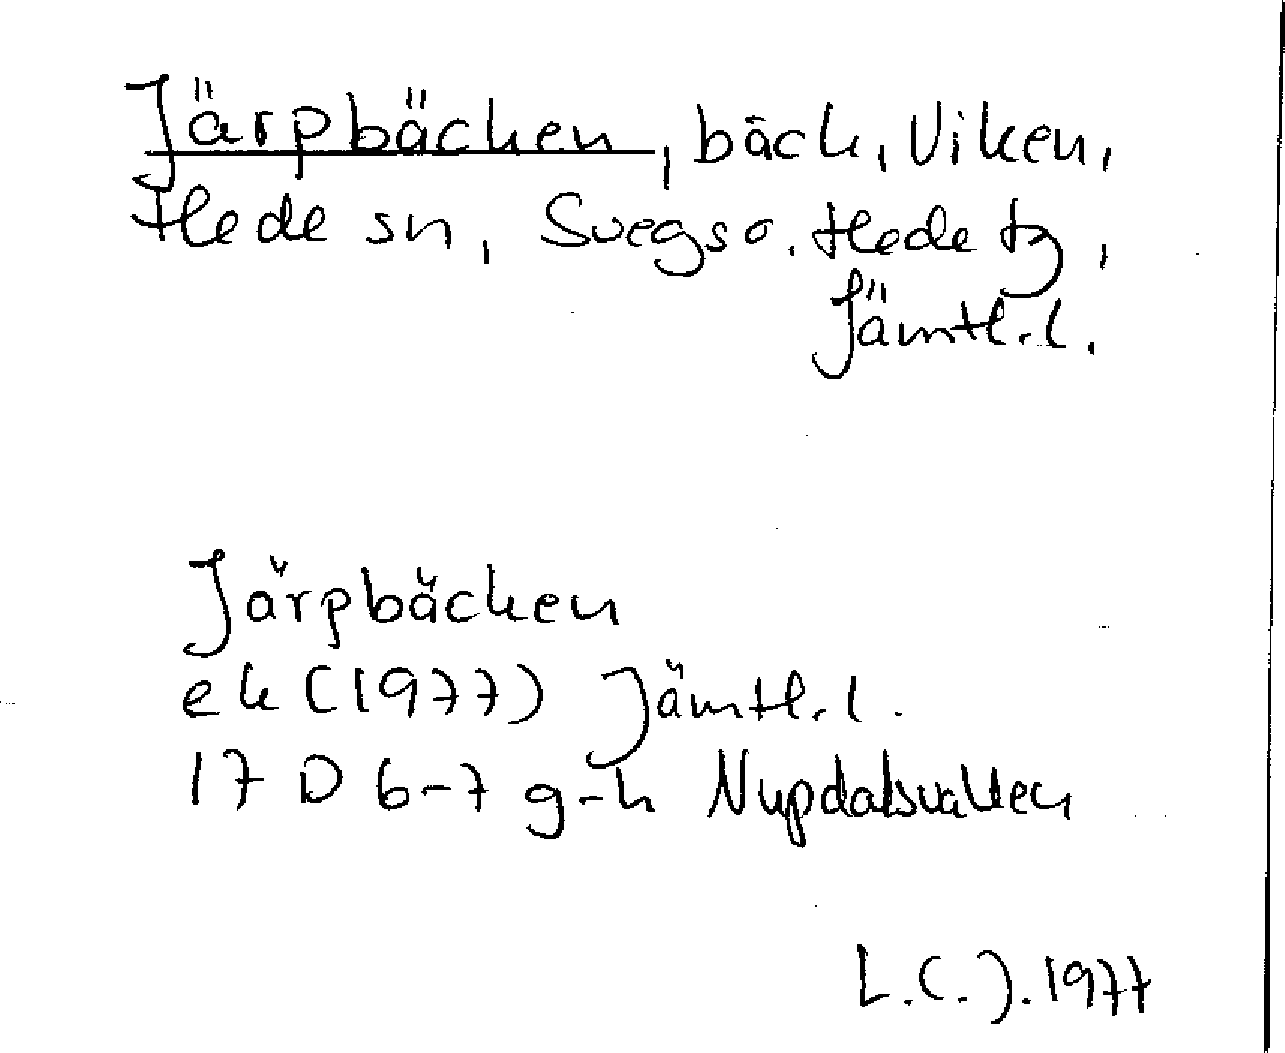 Järpbäcken, bäck, Viken,
Hede sn, Svegs o. Hede tg,
Jämtl. l.
Järpbäcken
ek (1977) Jämtl. l.
17 D 6-7 g-h Nupdalsvallen
L.C.J. 1977